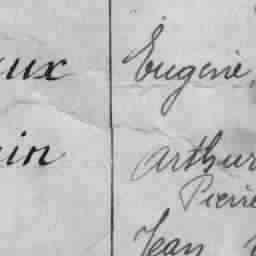 ux Eugène,
in Arthur
Pierre
Jean